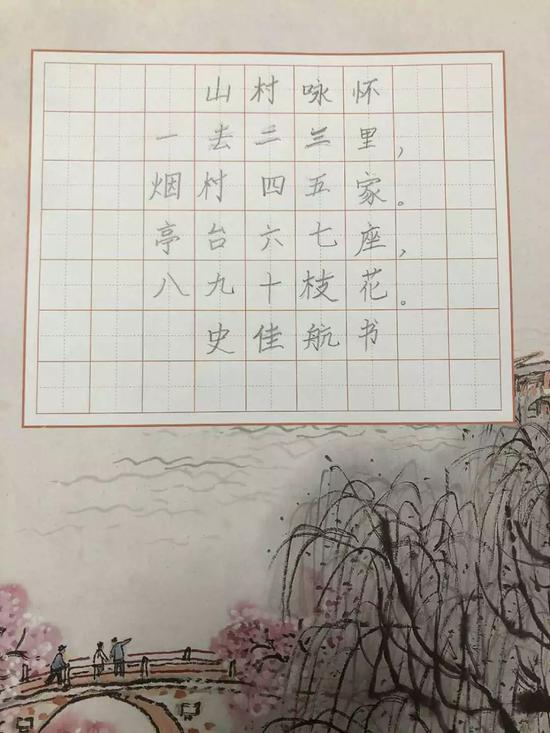 山村咏怀
一去二三里，
烟村四五家。
亭台六七座，
八九十枝花。
史佳航书